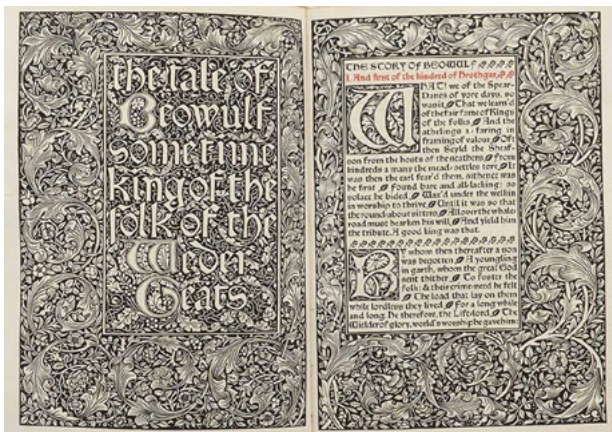 the tale of
Beowulf
sometime
king of the
folk of the
Weder
Geats
THE STORY OF BEOWULF
I. And first of the kindred of Hrothgar.
WHAT! we of the Spear-
Danes of yore days, so
was it
That we learn'd
of the fair fame of Kings
of the folks
And the
athelings a-faring in
framing of valour.
Oft
then Scyld the Sheaf-
son from the hosts of the scathers,
From
kindreds a many the mead-settles tore;
It
was then the earl fear'd them, sithence was
he first
Found bare and all-lacking; so
solace he bided,
Wax'd under the welkin
in worship to thrive,
Until it was so that
the round-about sitters
All over the whale-
road must hearken his will
And yield him
the tribute. A good king was that.
By whom then thereafter a son
was begotten,
A youngling
in garth, whom the great God
sent thither
To foster the
folk; & their crime-need he felt
The load that lay on them
while lordless they lived
For a long while
and long. He therefore, the Life-lord,
The
Wielder of glory, world's worship he gave him: